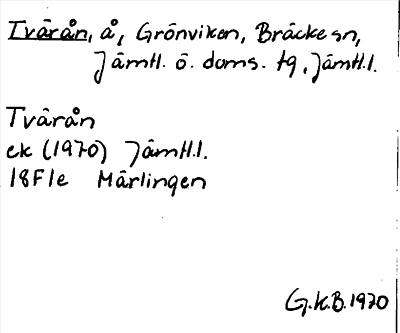 Tvärån, å, Grönviken, Bräcke sn,
Jämtl. ö. doms. tg, Jämtl.l.
Tvärån
ek (1970) Jämtl.l.
18F1e Märlingen
G.K.B. 1970